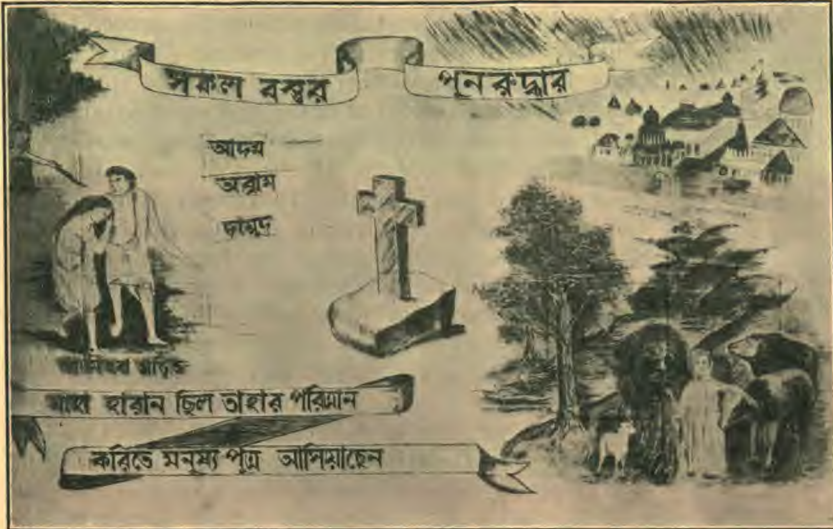 সকল বস্তুর পুনরুদ্ধার
আদম
অব্রাম
দায়ুদ
যাহা হারান ছিল তাহার পরিত্রান
করিতে মনুষ্য পুত্র আসিয়াছেন